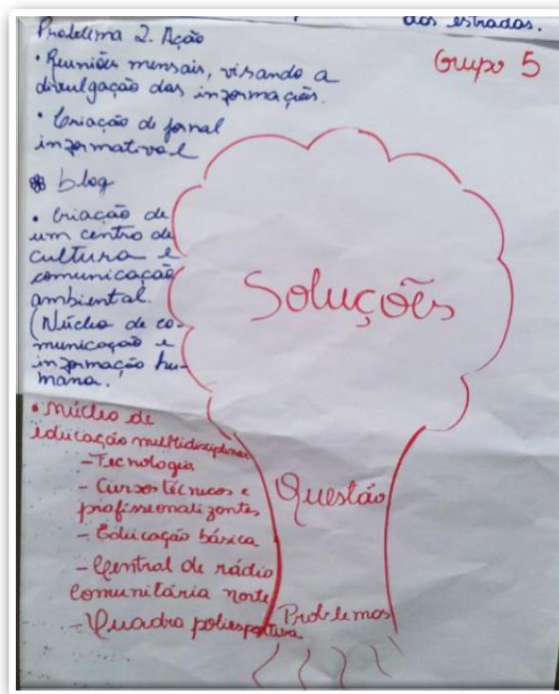 dos estradas.
Problema 2. Ação
Grupo 5
• Reuniões mensais, visando a
divulgação das informações.
• Criação de jornal
informativo e
blog
• Criação de
um centro de
cultura e
comunicação
ambiental.
(Núcleo de co-
municação e
informação hu-
mana.
• Núcleo de
educação multidisciplinar
- Tecnologia
- Cursos técnicos e
profissionalizantes
- Educação básica
- Central de rádio
comunitária norte
- Quadra poliesportiva
Soluções
Questão
Problemas